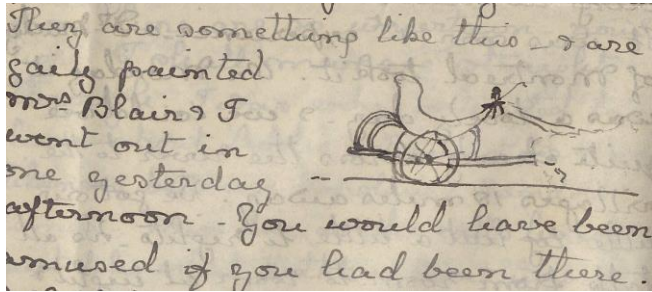 They are something like this - & are
gaily painted.
Mrs Blair & I
went out in
one yesterday
afternoon - You would have been
amused if you had been there.